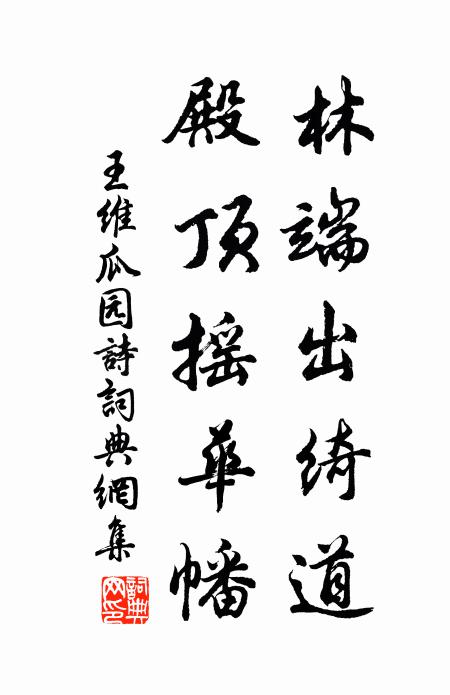 林端出绮道
殿顶摇華幡
王维瓜园詩詞典網集